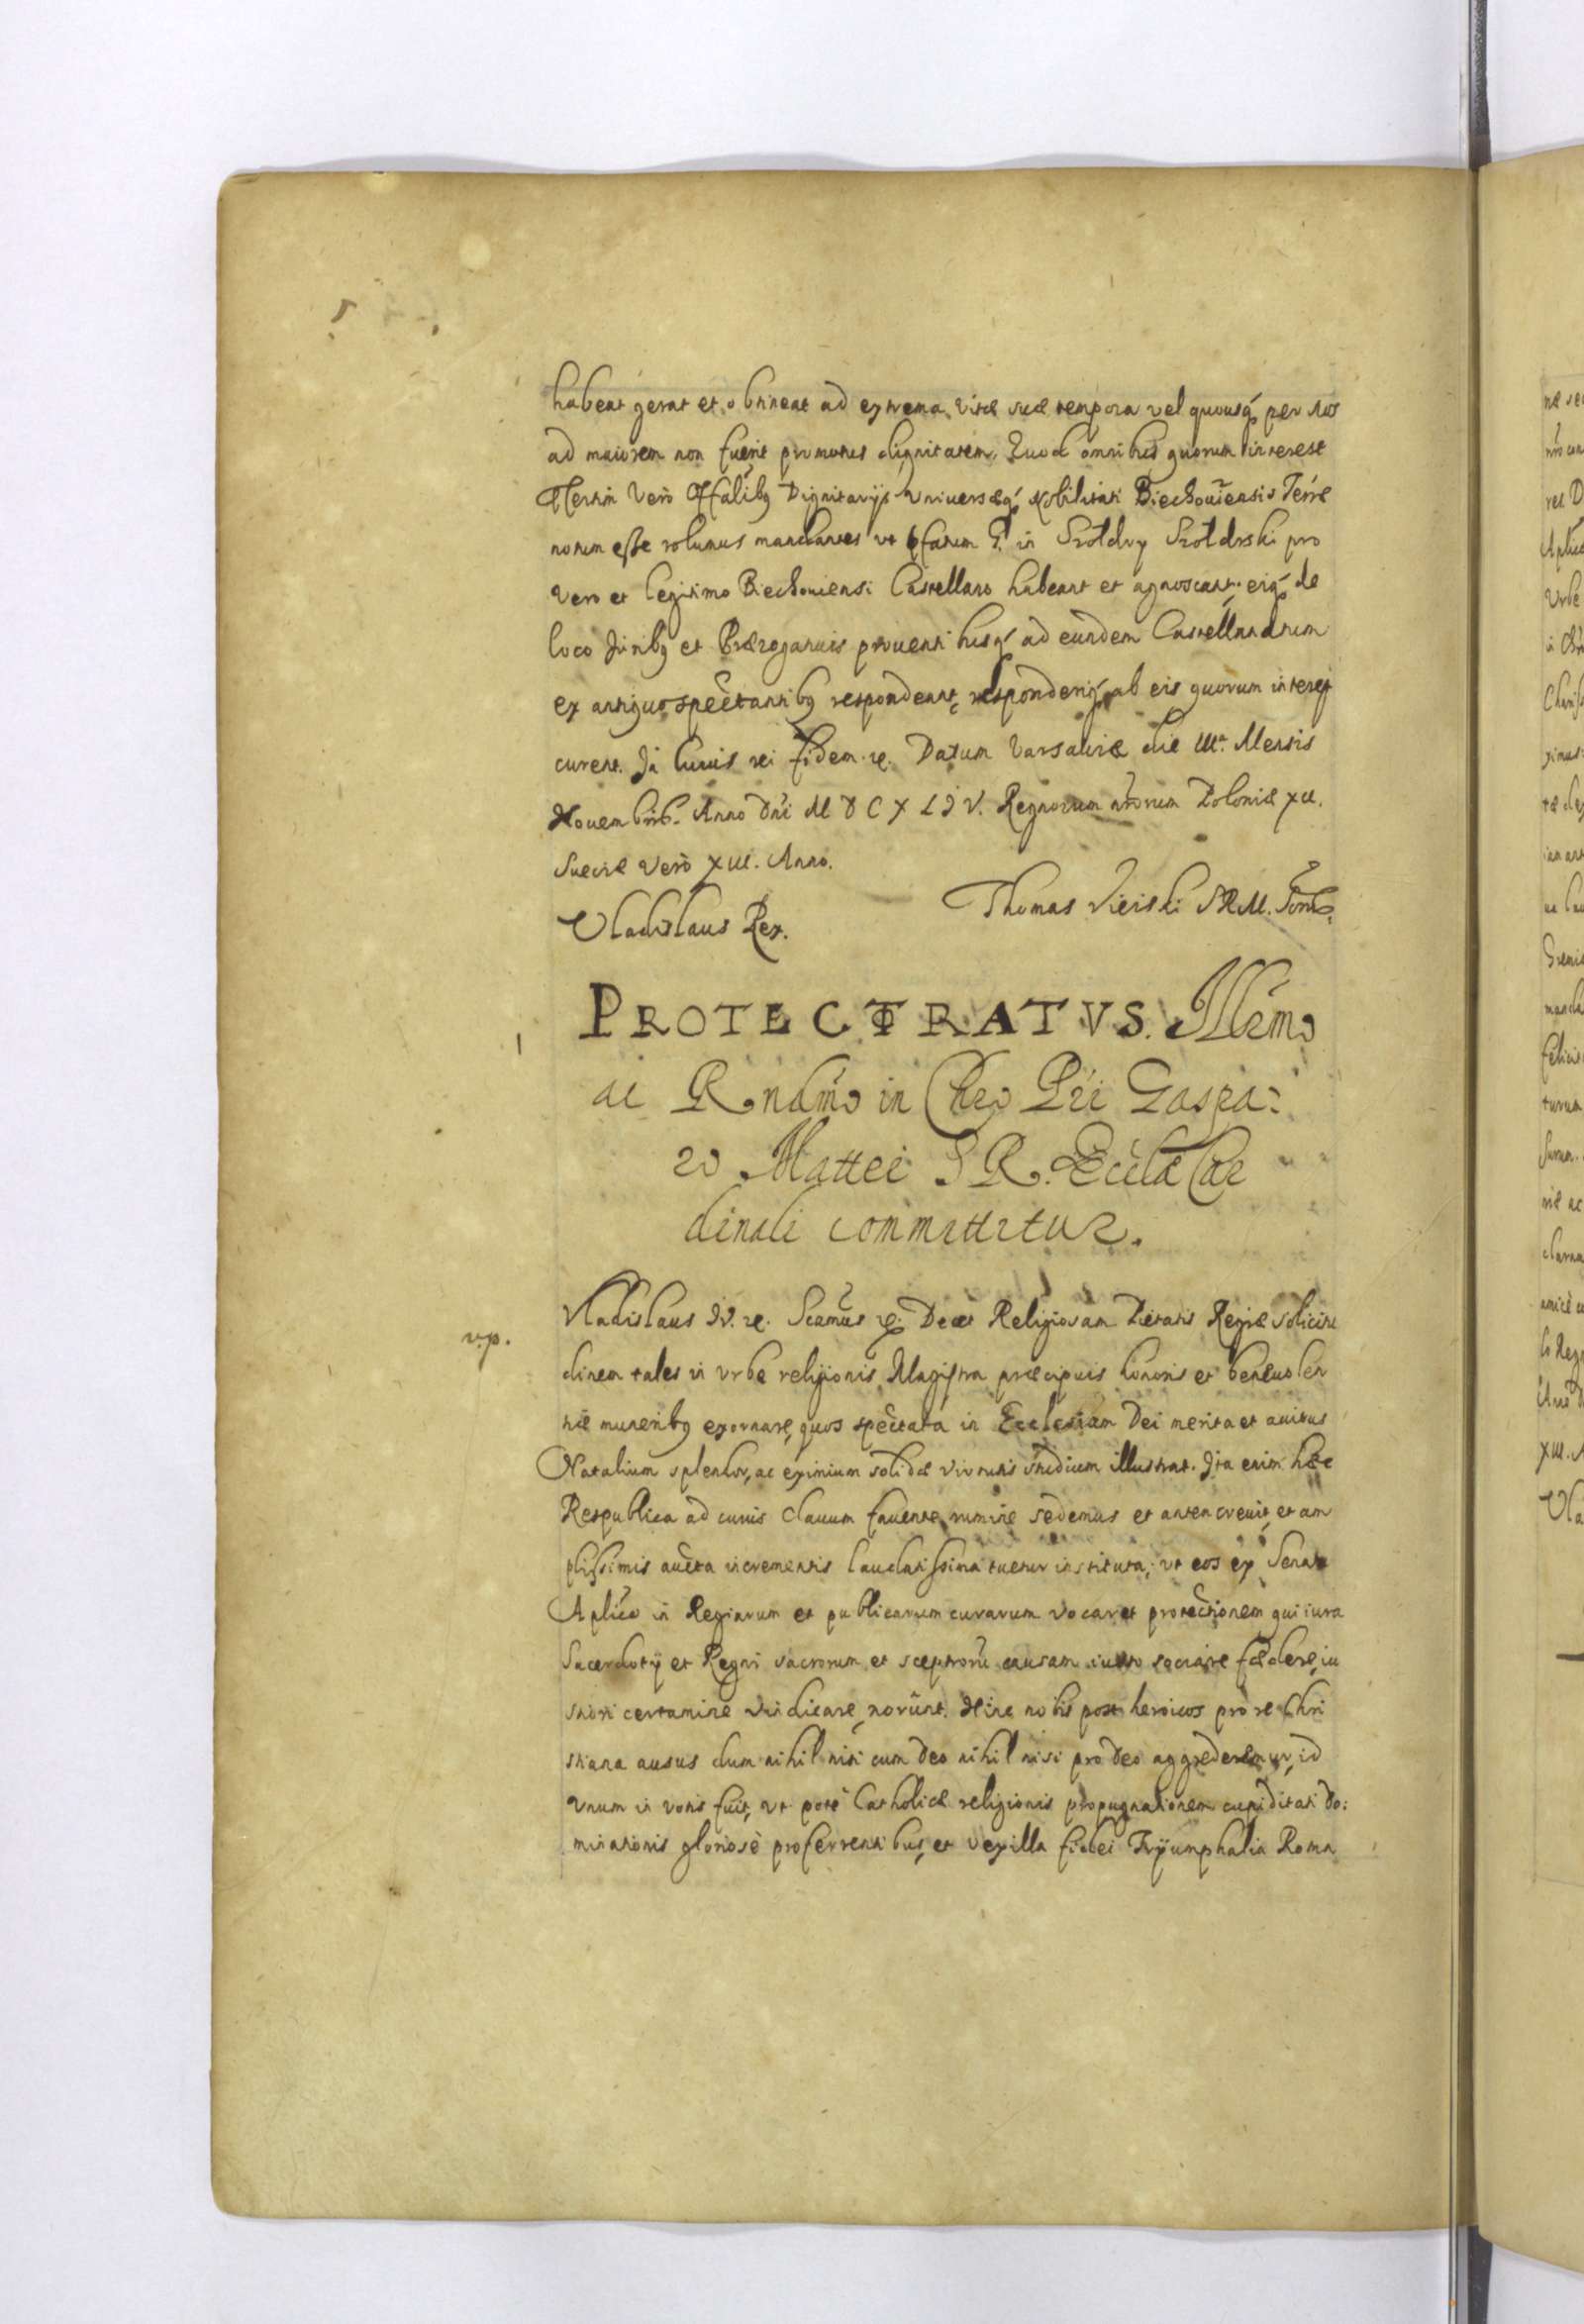 habeat gerat et obtineat ad extrema vitæ suæ tempora vel quousq; per nos
ad maiorem non fuerit promotus dignitatem. Quod omnibus quorum interest
vero Offalibq Dignitarijs Vniversæq; Nobilitati Biechouiensis Terræ
notum esse volumus mandantes vt in Szołdry Szołdrski pro
vero et legitimo Biechouiensi Castellano habeant et agnoscant; eiq; de
loco Iuribq et Prærogatiuis prouentibusq; ad eundem Castellanatum
ex antiquo spectantibq respondeant, responderiq; ab eis quorum interest
curent. In cuius rei fidem. &. Datum Varsauiæ die Mensis
Nouembris. Anno Dni M D C X L I V. Regnorum nrorum Poloniæ XII.
Sueciæ vero XIII. Anno.
Vladislaus Rex.
Thomas Vieiski SRM.
PROTECTORATVS. Illmo
ac Rndmo in Chro Pri Gaspa:
ro Mattei S R. Ecclæ Car
dinali committitur.
Vladislaus IV. &. Scamus &. Decet Religiosam Pietatis Regiæ solicitu
v.p.
dinem tales in vrbe religionis Magistra præcipuis honoris et beneuolen
tiæ muneribq exornare, quos spectata in Ecclesiam Dei merita et auitus
Natalium splendor, ac eximium solidæ virtutis studium illustrat. Ita enim hæc
Respublica ad cuius clauum fauente numine sedemus et antea creuit, et am
plissimis aucta incrementis laudatissima tuetur instituta; vt eos ex Senatu
Aplico in Regiarum et publicarum curarum vocaret protectionem qui iura
Sacerdotij et Regni sacrorum et sceptrorū causam iusto sociare fœdere, iu
stiori certamine vindicare norūnt. Hinc nobis post heroicos pro re Chri
stiana ausus dum nihil nisi cum Deo nihil nisi pro Deo aggrederemur, id
vnum in votis fuit, vt pote Catholicæ religionis propugnationem cupiditati do:
minationis gloriosè præferrentibus, et vexilla fidei Tryumphalia Roma